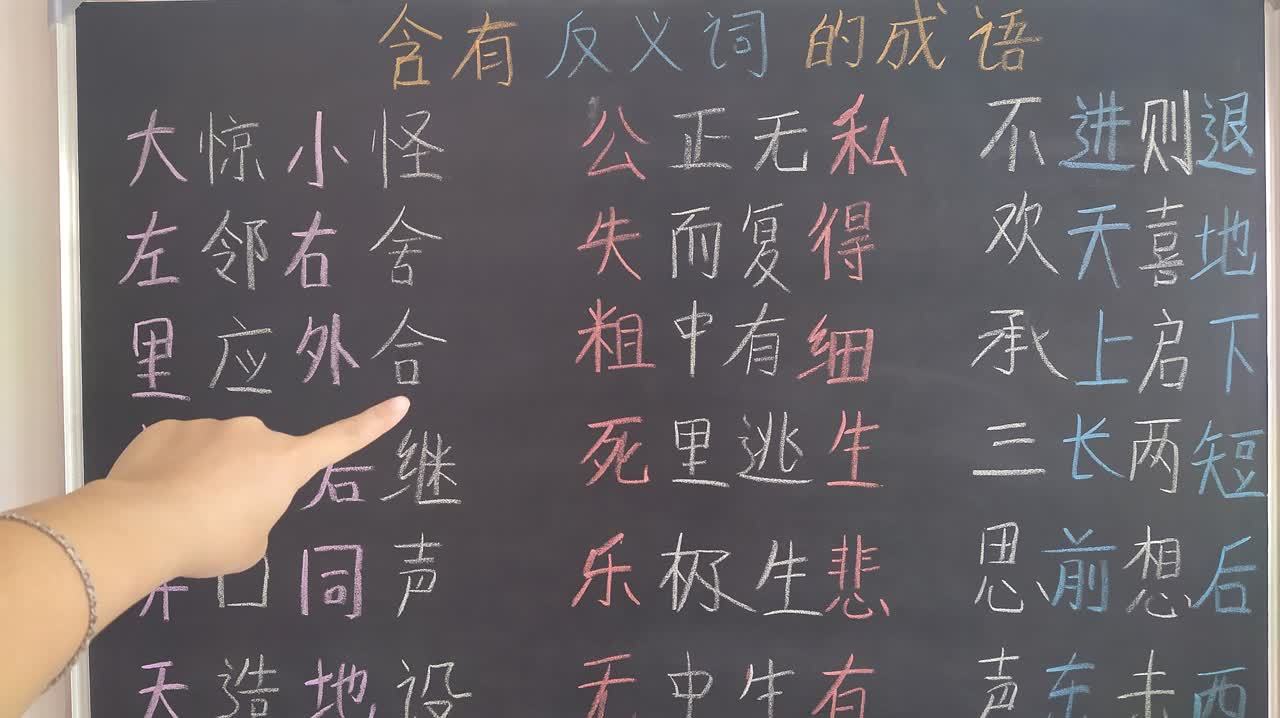 含有反义词的成语
大惊小怪 公正无私 不进则退
左邻右舍 失而复得 欢天喜地
里应外合 粗中有细 承上启下
后继 死里逃生 三长两短
异口同声 乐极生悲 思前想后
天造地设 无中生有 声东击西